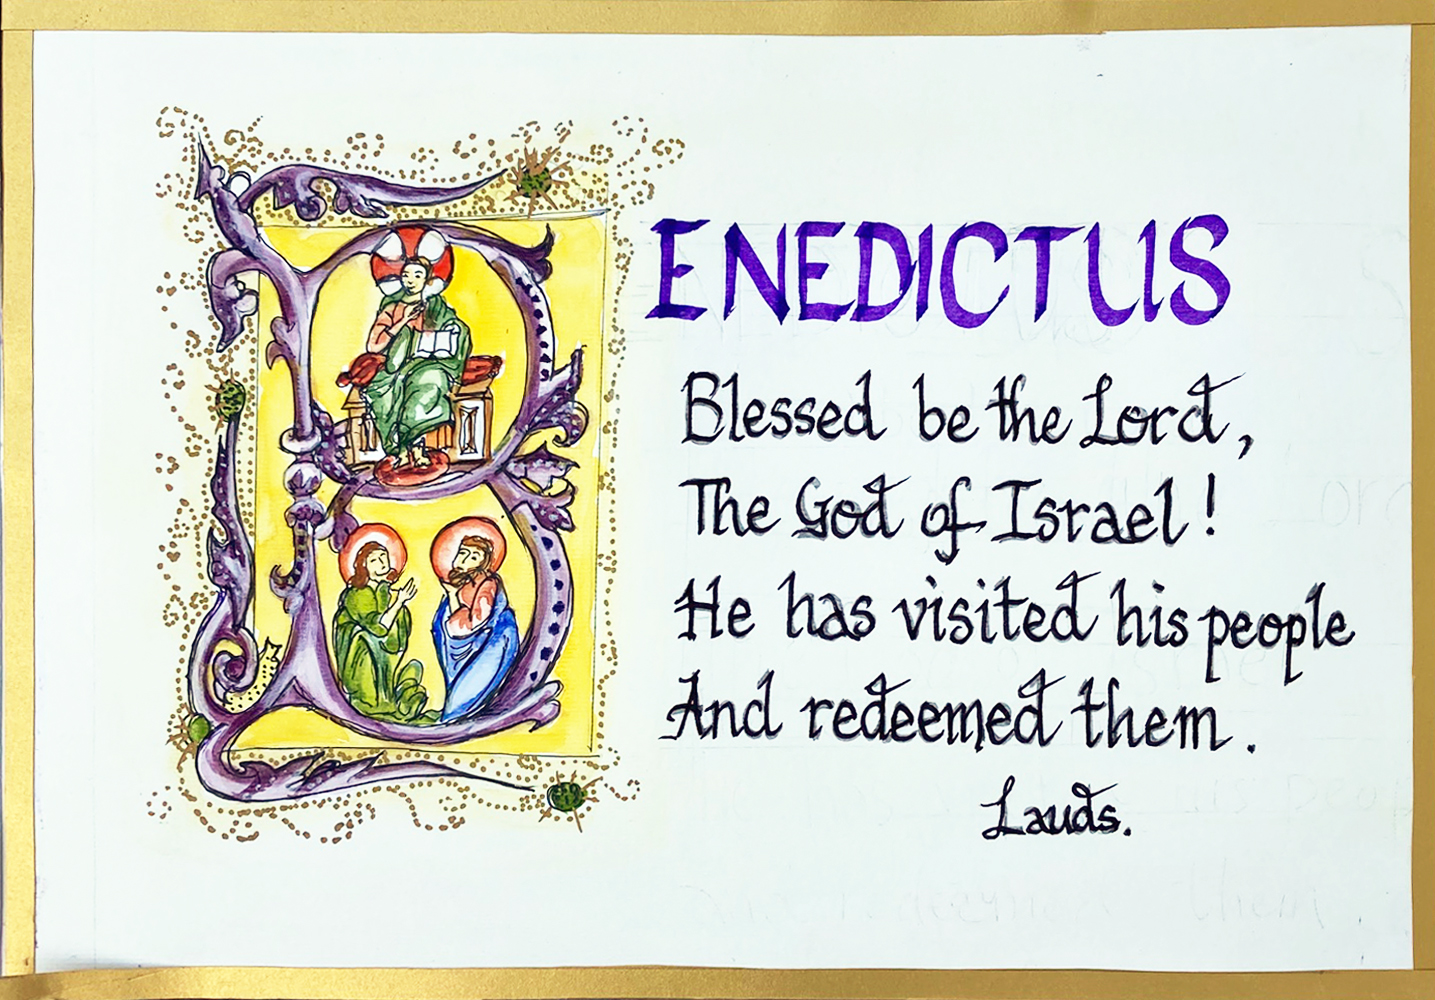 BENEDICTUS
Blessed be the Lord,
The God of Israel!
He has visited his people
And redeemed them.
Lauds.